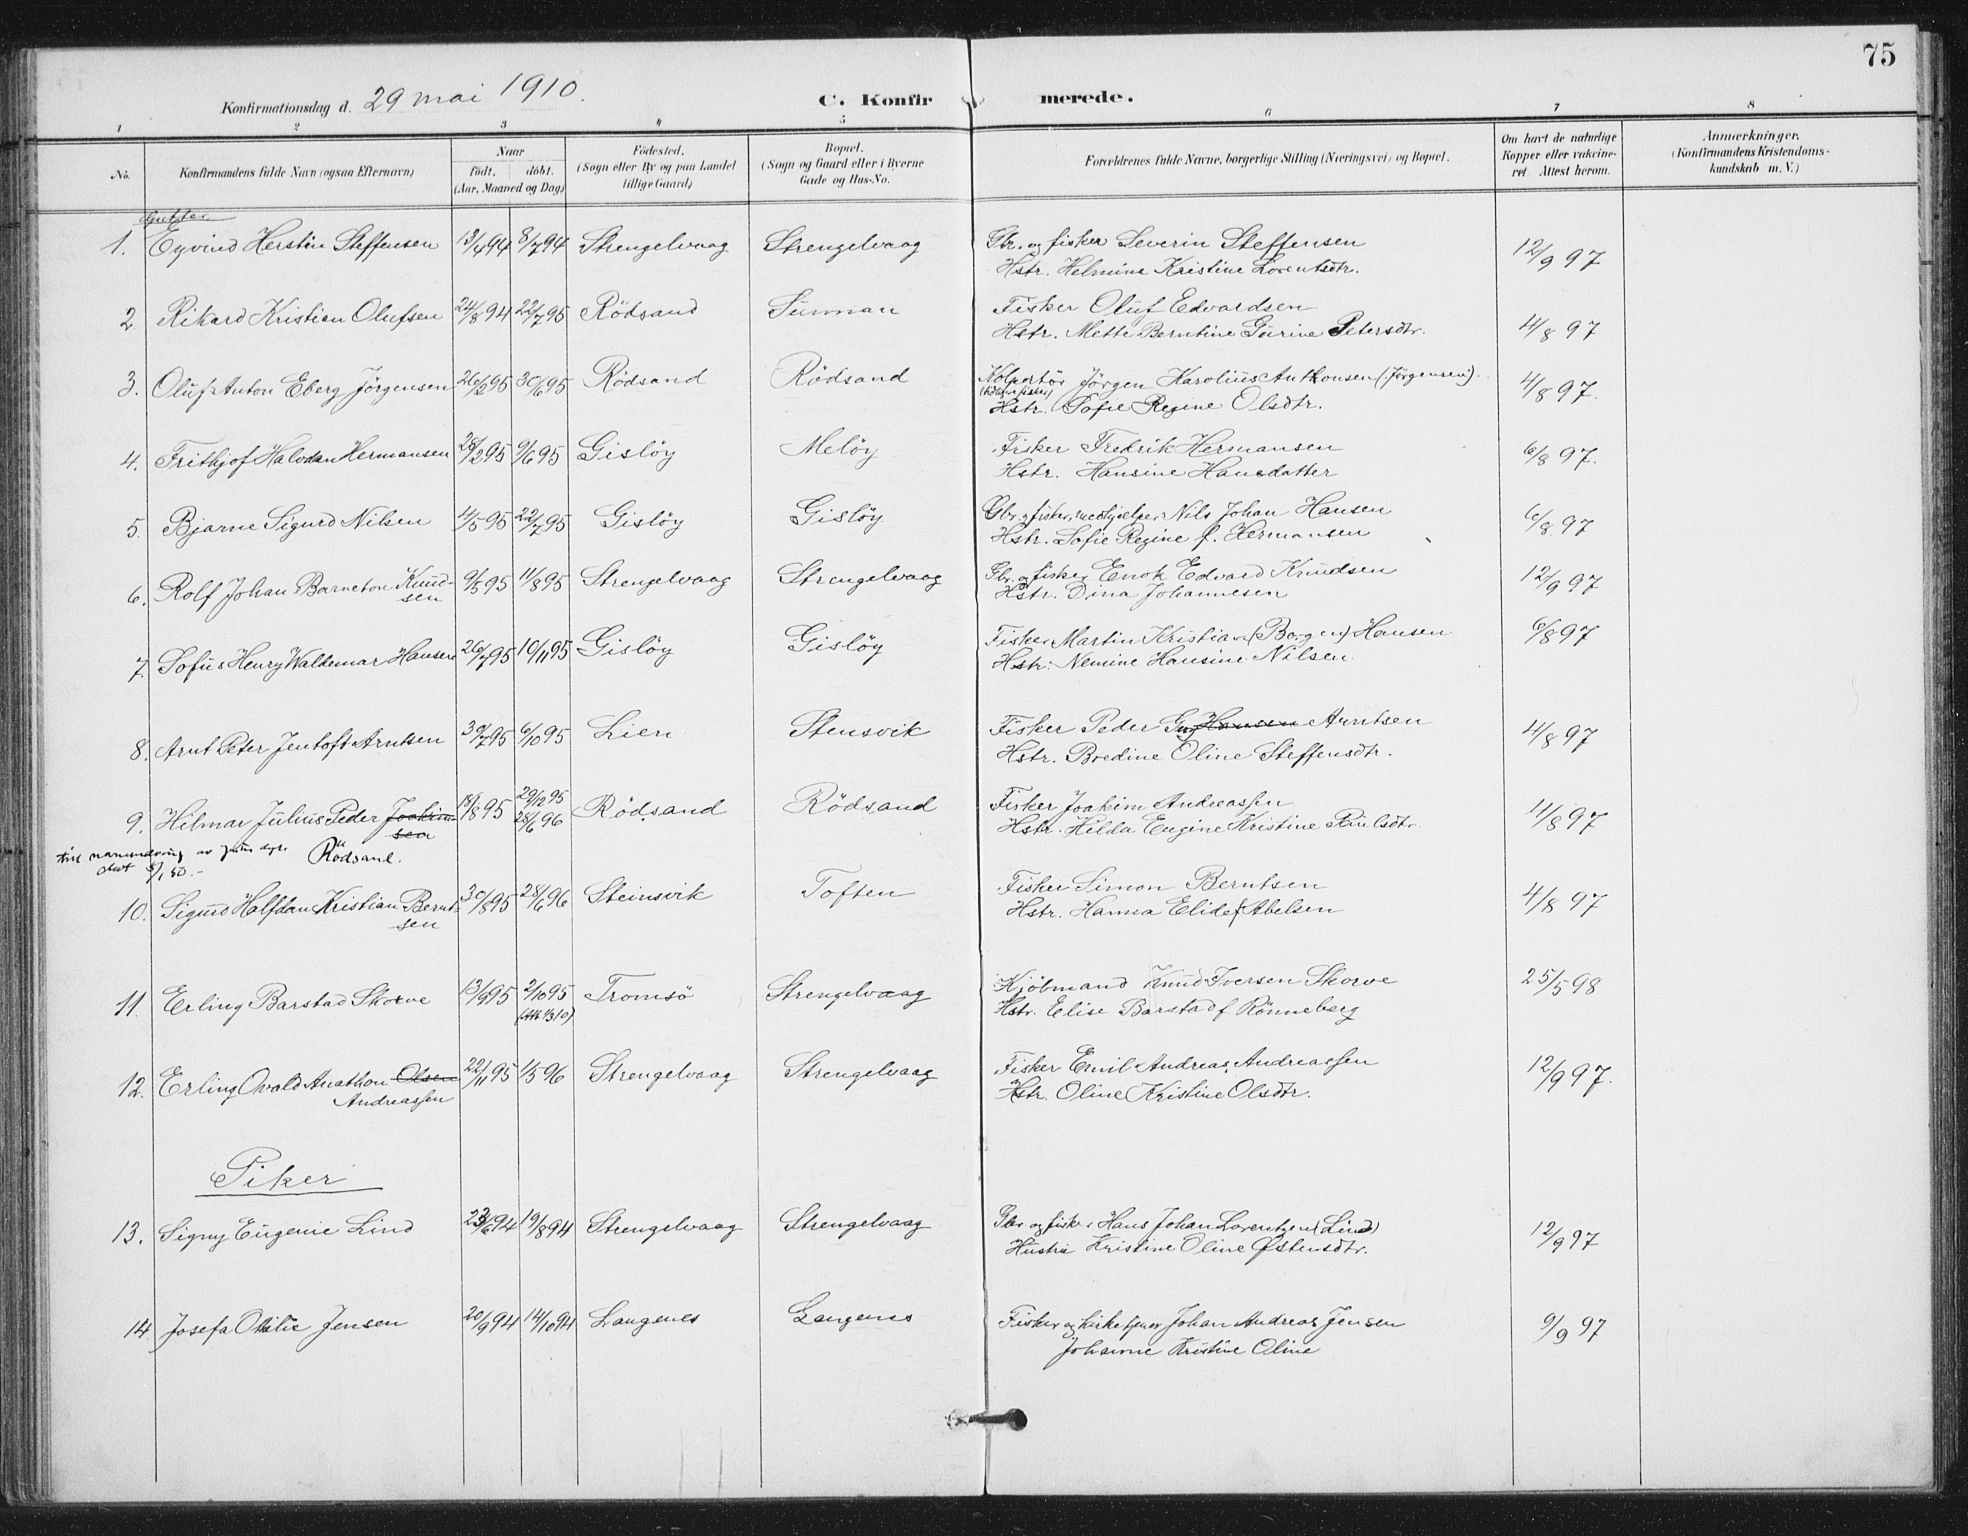 75
Konfirmationsdag d. 29 mai 1910.
C. Konfirmerede.
1 2 3 4 5 6 7 8
No.
Konfirmandens fulde Navn (ogsaa Efternavn)
Naar
født. døbt.
(Aar, Maaned og Dag)
Fødested.
(Sogn eller By og paa Landet
tillige Gaard)
Bopæl.
(Sogn og Gaard eller i Byerne
Gade og Hus-No.
Forældrenes fulde Navne, borgerlige Stilling (Næringsvei) og Bopæl.
Om havt de naturlige
Kopper eller vakcine-
ret Attest herom.
Anmærkninger.
(Konfirmandens Kristendoms-
kundskab m. V.)
Gutter
1. Eyvind Herstin Steffensen 13/4 94 8/7 94 Strengelvaag Strengelvaag Gbr. og fisker Severin Steffensen 12/9 97
Hstr. Helmine Kristine Lorentsdtr.
2. Rikard Kristian Olufsen 24/8 94 22/7 95 Rödsand Tunman Fisker Oluf Edvardsen 4/8 97
Hstr. Mette Berntine Gurine Petersdtr.
3. Oluf Anton Eberg Jörgensen 26/2 95 30/6 95 Rödsand Rödsand Kolportör Jörgen Karolius Anthonsen (Jörgensen). 4/8 97.
Hstr. Sofie Regine Olsdtr.
4. Frithjof Halvdan Hermansen 28/2 95 9/6 95 Gislöy Melöy Fisker Fredrik Hermansen 6/8 97.
Hstr. Hansine Hansdatter
5. Bjarne Sigurd Nilsen 4/5 95 22/7 95 Gislöy Gislöy Gbr. og fisker, medhjælper Nils Johan Hansen 6/8 97
Hstr. Sofie Regine f. Hermansen
6. Rolf Johan Barneton Knud- 9/5 95 11/8 95 Strengelvaag Strengelvaag Gbr. og fisker Enok Edvard Knudsen 12/9 97
sen Hstr. Dina Johannesen
7. Sofus Henry Waldemar Hansen 26/7 95 10/11 95 Gislöy Gislöy Fisker Martin Kristian (Borgen) Hansen 6/8 97
Hstr. Nemine Hansine Nilsen
8. Arnt Peter Jentoft Arntsen 30/7 95 6/10 95 Lien Stensvik Fisker Peder Hansen Arntsen 4/8 97
Hstr. Bredine Oline Steffensdtr.
9. Hilmar Julius Peder Joakim- 18/8 95 29/12 95 Rödsand Rödsand Fisker Joakim Andreassen 4/8 97
sen 28/6 96 Hstr. Hilda Eugine Kristine Paulsdtr.
Rødsand.
10. Sigurd Halfdan Kristian Bernt- 30/8 95 28/6 96 Steinsvik Toften Fisker Simon Berntsen 4/8 97
sen Hstr. Hanna Elide f. Abelsen
11. Erling Barstad Skorve 13/9 95 2/10 95 Tromsö Strengelvaag Kjöbmand Knud Iversen Skorve 25/5 98
Hstr. Elise Barstad f. Rönneberg
12. Erling Ovald Anathon Olsen 22/11 95 1/5 96 Strengelvaag Strengelvaag Fisker Emil Andreas Andreassen 12/9 97.
Andreassen Hstr. Oline Kristine Olsdtr.
Piker
13. Signy Eugenie Lind 23/6 94 19/8 94 Strengelvaag Strengelvaag Gbr. og fisker Hans Johan Lorentzen (Lind) 12/9 97
Hustru Kristine Oline Østensdtr.
14. Josefa Otilie Jensen 20/9 94 14/10 94 Langenes Langenes Fisker og kirketjener Johan Andreas Jensen 9/9 97
Johanne Kristine Oline